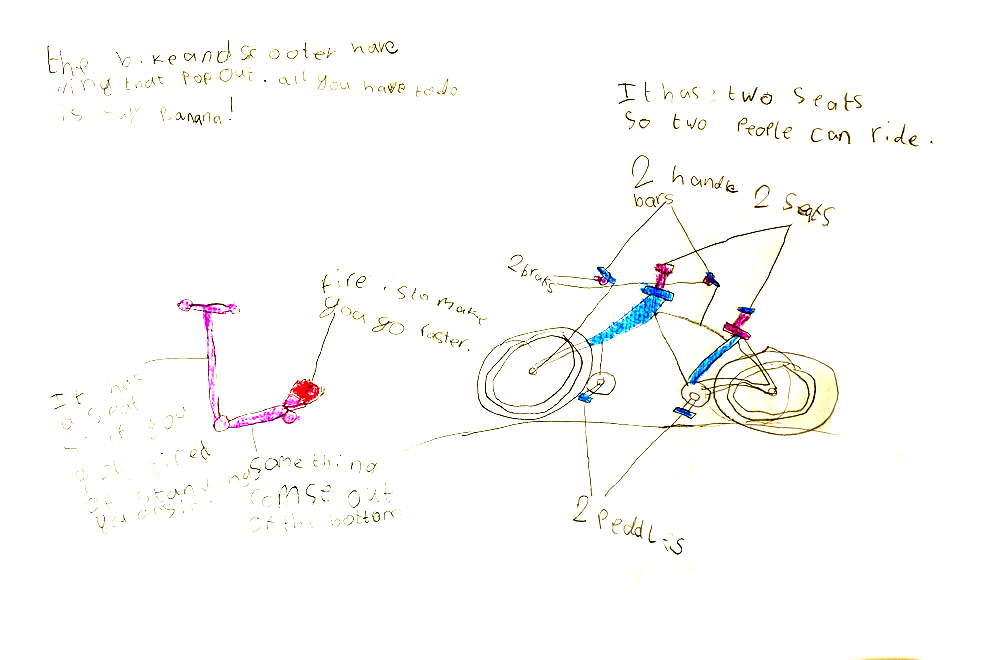 the bikeandscooter have
wing that Pop Out. all you have todo
is say Banana!
It has two Seats
So two People can ride.
2 handle
bars
2 Seats
2 braks
fire. sto make
you go faster.
It has
a seat
so if you
get tired
of stand
you
something
comse out
of the bottom
2 Peddles